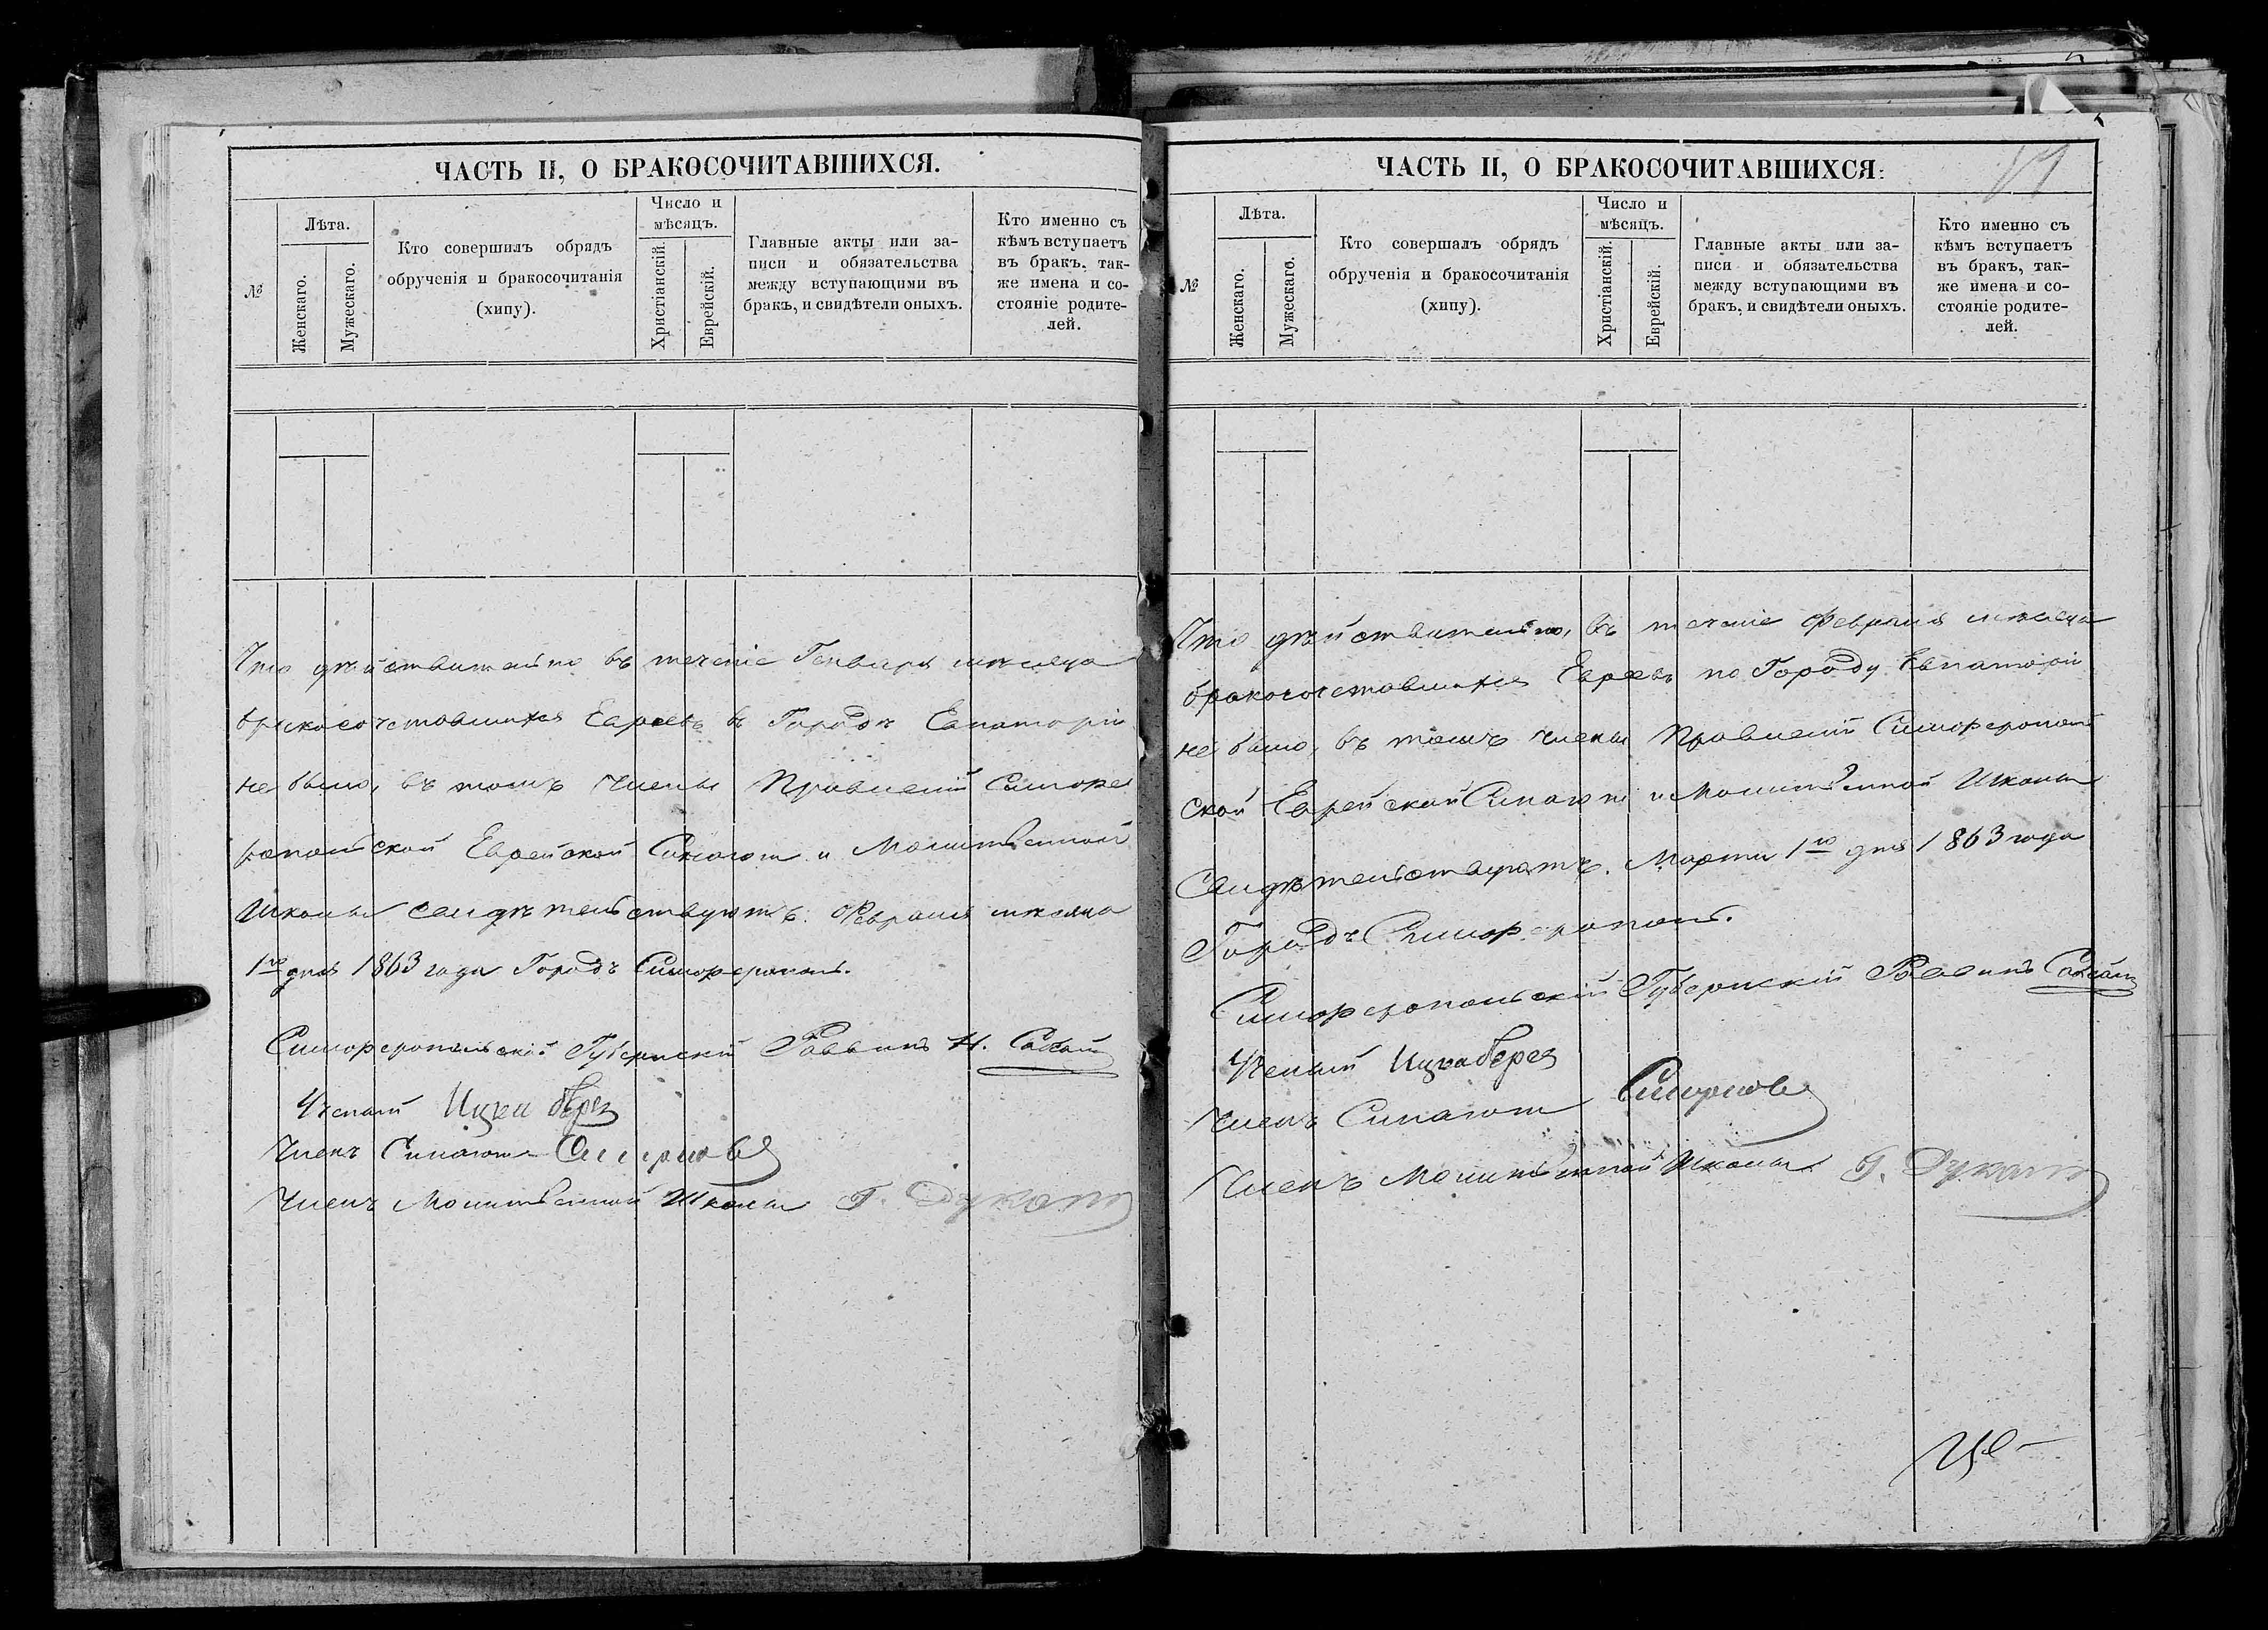 ЧАСТЬ II, О БРАКОСОЧИТАВШИХСЯ.
№
Лѣта.
Женскаго.
Мужескаго.
Кто совершилъ обрядъ
обрученія и бракосочитанія
(хипу).
Число и
мѣсяцъ.
Христіанскій.
Еврейскій.
Главные акты или за-
писи и обязательства
между вступающими въ
бракъ, и свидѣтели оныхъ.
Кто именно съ
кѣмъ вступаетъ
въ бракъ, так-
же имена и со-
стояніе родите-
лей.
Что дѣйствительно въ теченіе Генваря мѣсяца
бракосочетавшихся Евреевъ въ Городѣ Евпаторіи
не было, въ томъ Члены Правленій Симфе
ропольской Еврейской Синагоги и Молитвенной
Школы свидѣтельствуютъ. Февраля мѣсяца
1го дня 1863 года Городъ Симферополь.
Симферопольскій Губернскій Раввинъ
Ученый
Членъ Синагоги Смирновъ
Членъ Молитвенной Школы Г.
ЧАСТЬ II, О БРАКОСОЧИТАВШИХСЯ:
№
Лѣта.
Женскаго.
Мужескаго.
Кто совершалъ обрядъ
обрученія и бракосочитанія
(хипу).
Число и
мѣсяцъ.
Христіанскій.
Еврейскій.
Главные акты или за-
писи и обязательства
между вступающими въ
бракъ, и свидѣтели оныхъ.
Кто именно съ
кѣмъ вступаетъ
въ бракъ, так-
же имена и со-
стояніе родите-
лей.
Что дѣйствительно, въ теченіе Февраля мѣсяца
бракосочетавшихся Евреевъ по Городу Евпаторіи
не было, въ томъ члены Правленій Симферополь
ской Еврейской Синагоги и Молитвенной Школы
Свидѣтельствуютъ. Марта 1го дня 1863 года
Городъ Симферополь.
Симферопольскій Губернскій Раввинъ
Ученый
Членъ Синагоги Смирновъ
Членъ Молитвенной Школы Г.